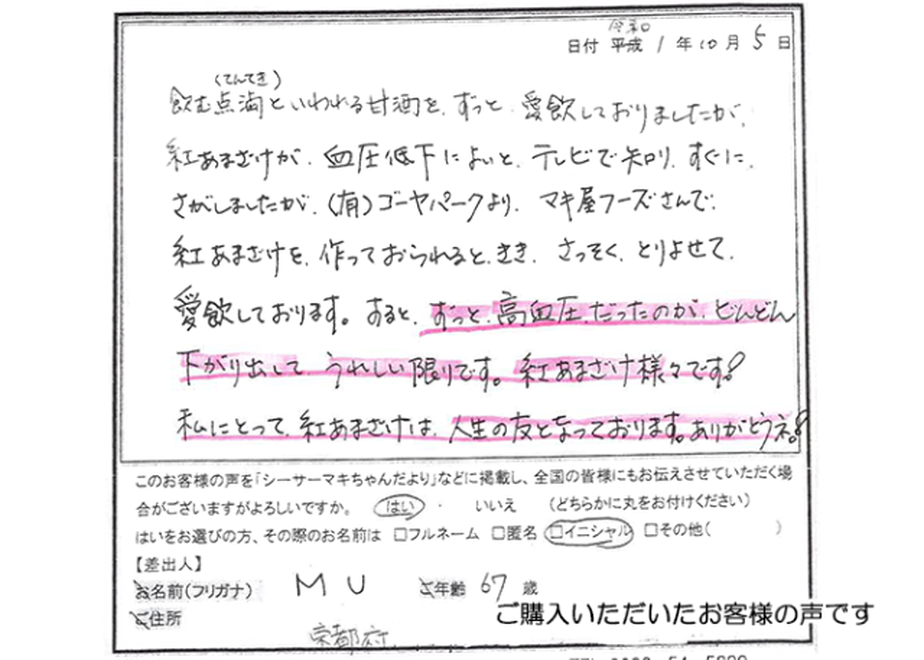 令和
日付 平成 1 年 10 月 5 日
(てんてき)
飲む点滴といわれる甘酒を、ずっと、愛飲しておりましたが、
紅あまざけが、血圧低下によいと、テレビで知り、すぐに、
さがしましたが、(有)ゴーヤパークより、マキ屋フーズさんで、
紅あまざけを、作っておられると、きき、さっそく、とりよせて、
愛飲しております。すると、ずっと、高血圧、だったのが、どんどん
下がり出して、うれしい限りです。紅あまざけ様々です!
私にとって、紅あまざけは、人生の友となっております。ありがとうネ!
このお客様の声を「シーサーマキちゃんだより」などに掲載し、全国の皆様にもお伝えさせていただく場
合がございますがよろしいですか。 はい ・ いいえ (どちらかに丸をお付けください)
はいをお選びの方、その際のお名前は □フルネーム □匿名 □イニシャル □その他( )
【差出人】
お名前(フリガナ) M U ご年齢 67 歳
ご購入いただいたお客様の声です
ご住所
京都府